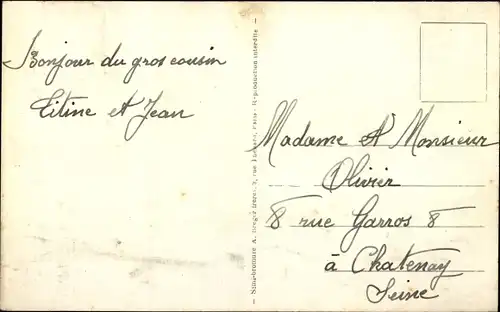 Bonjour du gros cousin
Titine et Jean
Madame et Monsieur
Olivier
8 rue Garros 8
à Chatenay
Seine
Simi-bromure A. Breger frères, 9, rue Paris - Reproduction interdite